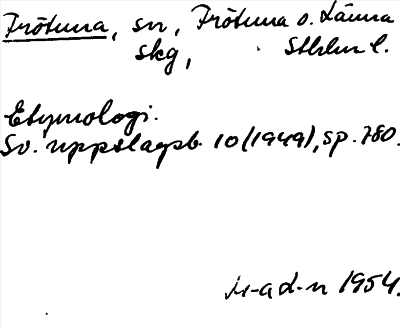 Frötuna, sn, Frötuna o. Länna
skg, Sthlm l.
Etymologi.
Sv. uppslagsb. 10 (1949), sp. 780.
1954.